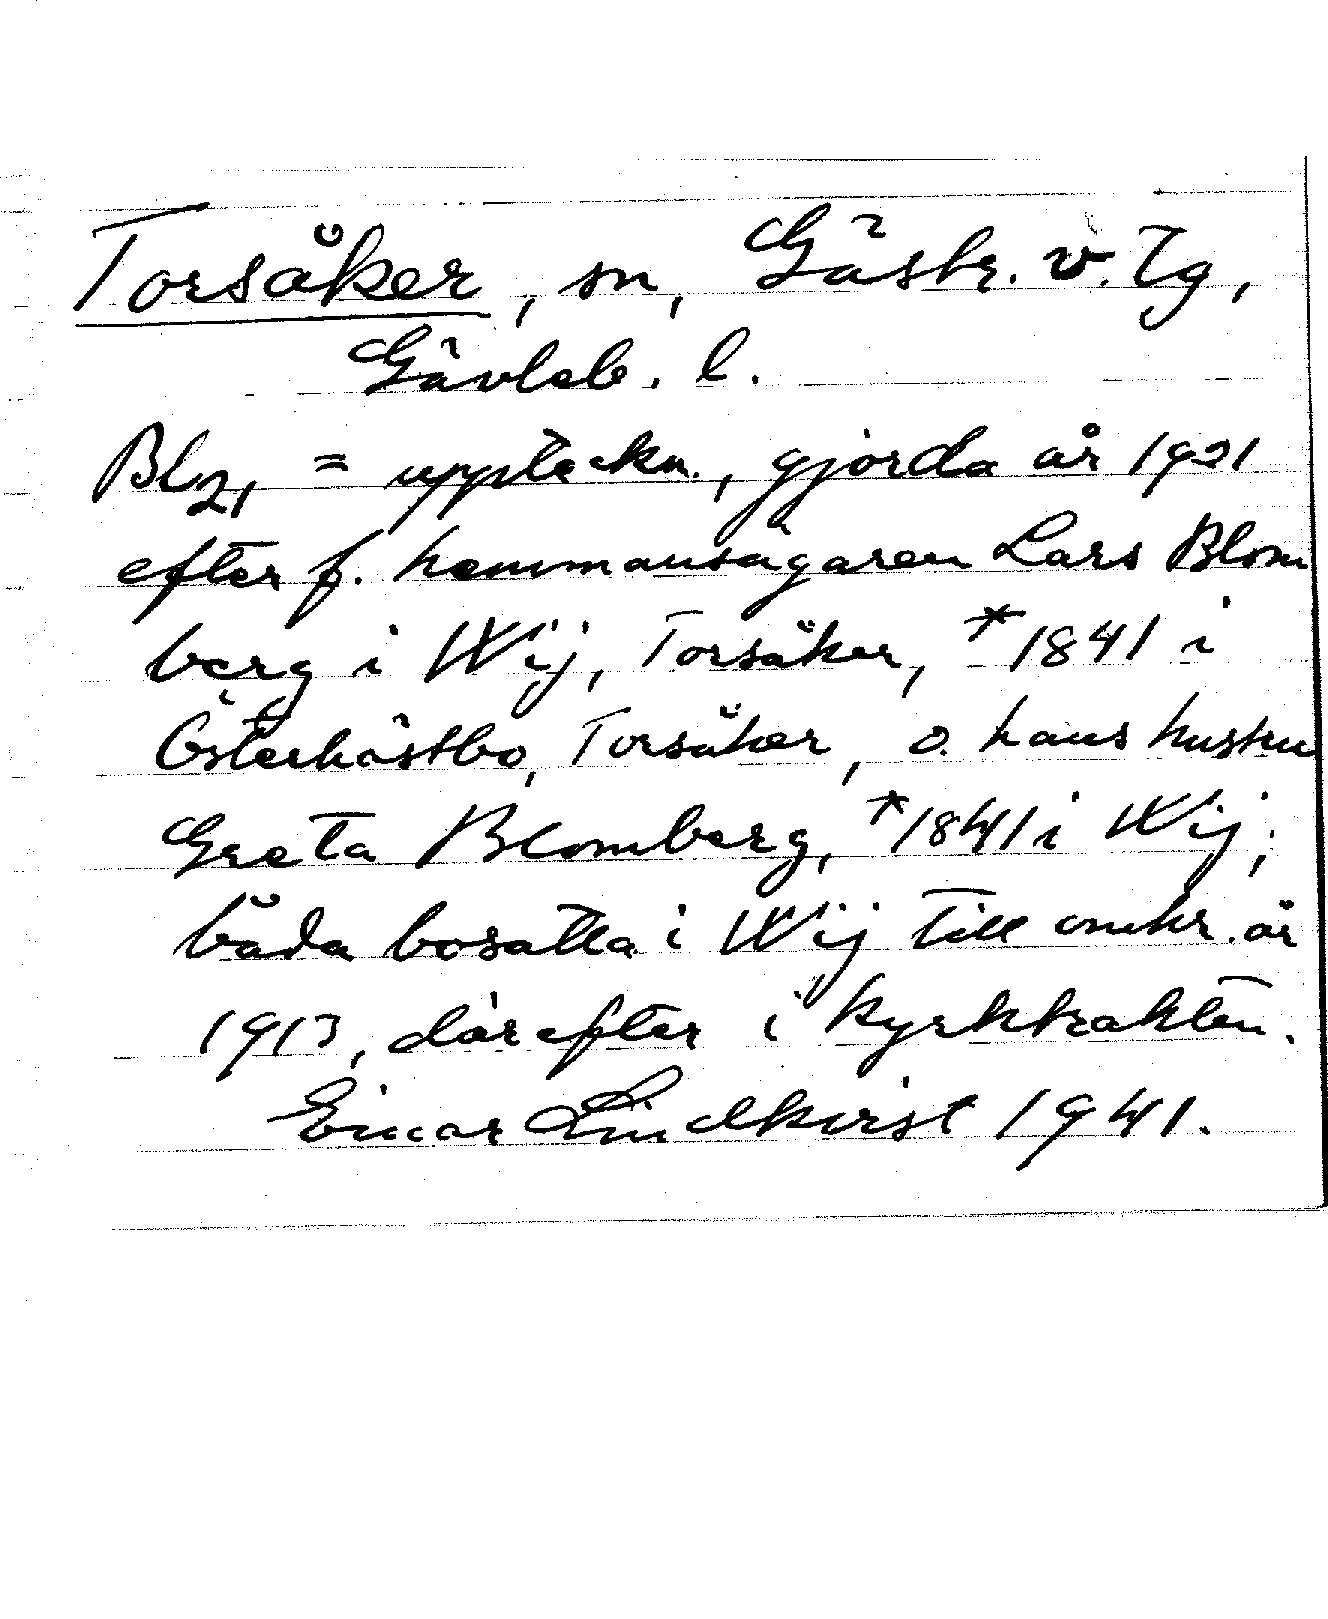 Torsåker, sn, Gästr. v. Tg,
Gävleb. l.
Bl21 = uppteckn., gjorda år 1921
efter f. hemmansägaren Lars Blom
berg i Wij, Torsåker, *1841 i
Österhästbo, Torsåker, o. hans hustru
Greta Blomberg, *1841 i Wij;
båda bosatta i Wij till omkr. år
1913, därefter i kyrktrakten.
Einar Lindkvist 1941.